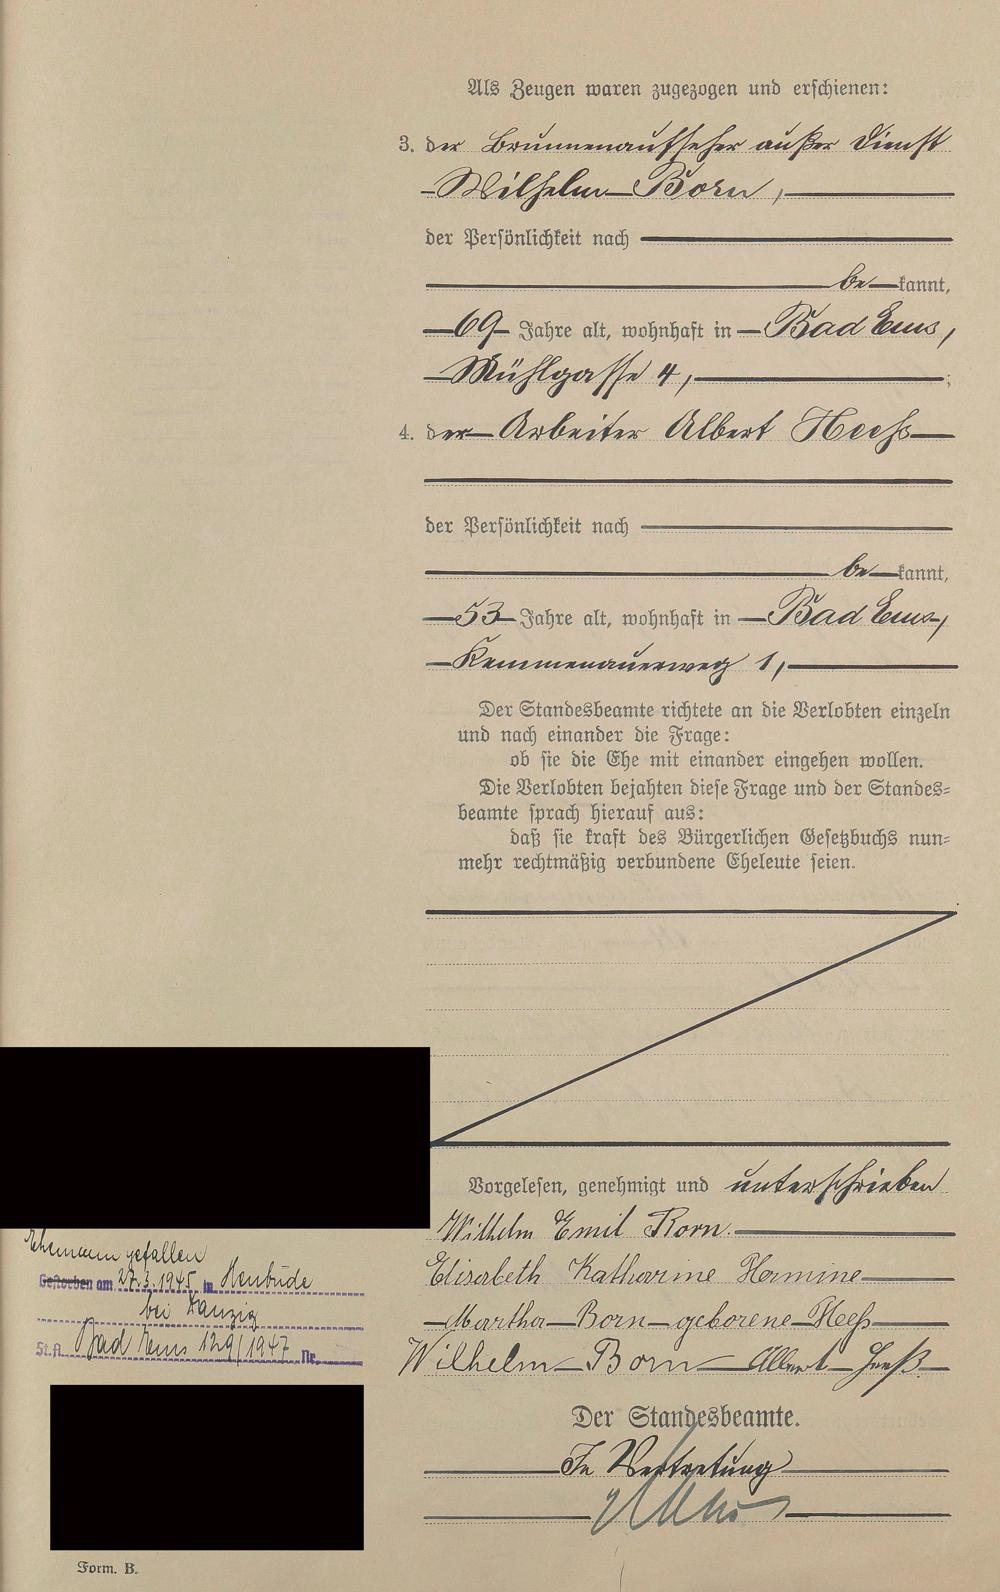 Als Zeugen waren zugezogen und erschienen:
3. der Brunnenaufseher außer Dienst
Wilhelm Born,
der Persönlichkeit nach
be kannt,
69 Jahre alt, wohnhaft in Bad Ems,
Mühlgasse 4, ;
4. der Arbeiter Albert Heeß
der Persönlichkeit nach
be kannt,
53 Jahre alt, wohnhaft in Bad Ems,
Kemmenauerweg 1,
Der Standesbeamte richtete an die Verlobten einzeln
und nach einander die Frage:
ob sie die Ehe mit einander eingehen wollen.
Die Verlobten bejahten diese Frage und der Standes=
beamte sprach hierauf aus:
daß sie kraft des Bürgerlichen Gesetzbuchs nun=
mehr rechtmäßig verbundene Eheleute seien.
Vorgelesen, genehmigt und unterschrieben
Wilhelm Emil Born.
Elisabeth Katharine Hermine
Martha Born geborene Heeß
Wilhelm Born Albert Heeß
Der Standesbeamte.
In Vertretung
Ehemann gefallen
Gestorben am 27.3.1945 in Heubude
bei Danzig
St.A. Bad Ems 129/1947 Nr.
Form. B.